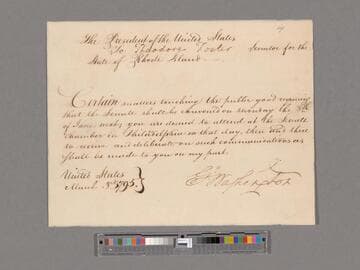 The President of the United States
To Theodore Foster Senator for the
State of Rhode Island
Certain matters touching the public good requiring
that the Senate shall be convened on Monday the 8th
of June next, you are desired to attend at the Senate
Chamber in Philadelphia on that day, then and there
to receive and deliberate on such communications as
shall be made to you on my part.
United States
March 3d 1795
G. Washington